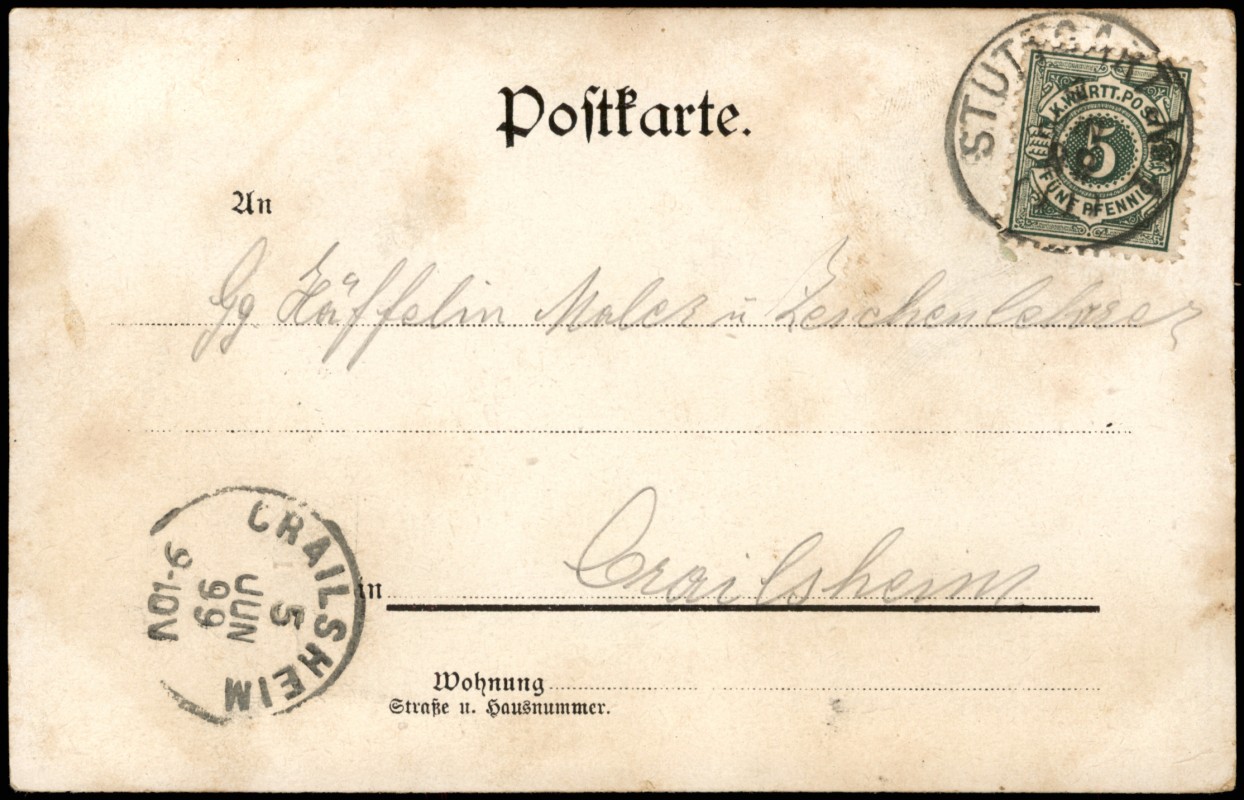 Postkarte.
STUTTGART
K. WÜRTT. POST
5
FÜNF PFENNIG
An
Gg Häffelin Maler u Zeichenlehrer
Crailsheim
in
CRAILSHEIM
5
JUN
99
9-10V
Wohnung
Straße u. Hausnummer.